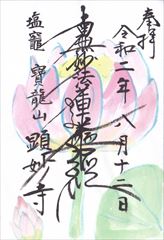 奉拝
令和二年八月十三日
南無妙法蓮華経
塩竈 寶龍山 顕妙寺